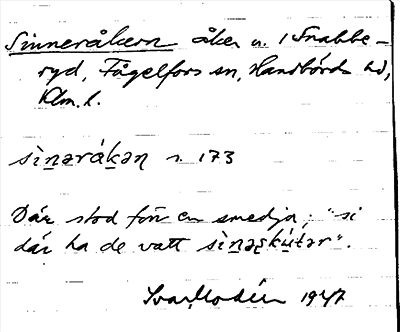 Sinneråkern åker n. 1 Snabbe-
ryd, Fågelfors sn, Handbörds hd,
Klm. l.
sìn̲ərákən s. 173
Där stod förr en smedja; "si
där ha de vatt sìn̲əʂkútər".
Ivar Modéer 1947